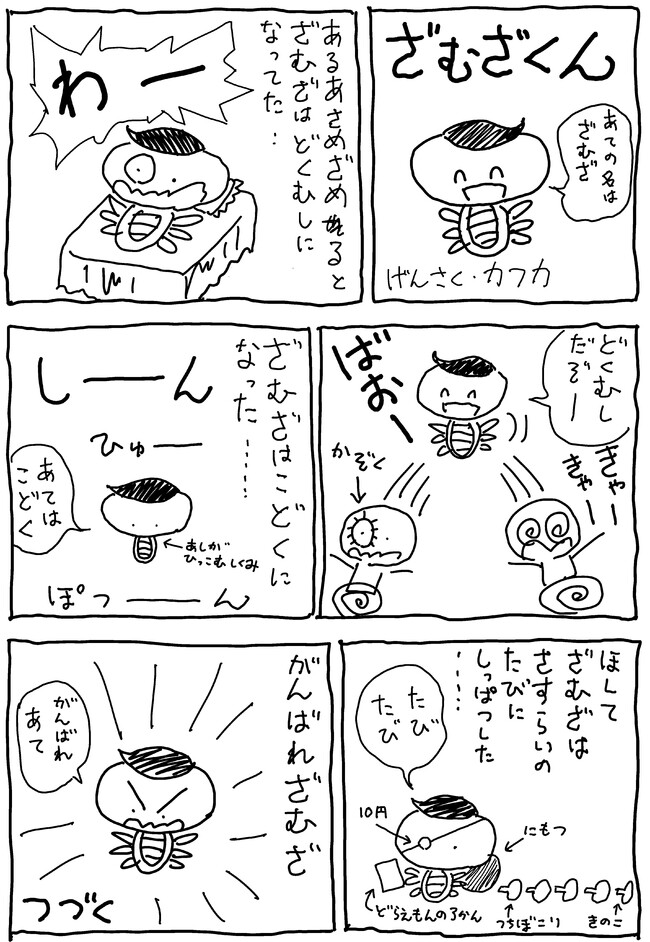 ざむざくん
あての名は
ざむざ
げんさく・カフカ
あるあさめざめると
ざむざはどくむしに
なってた…
わー
どくむし
だぞー
ばおー
きゃー
きゃー
かぞく
ざむざはこどくに
なった……
しーん
ひゅー
あては
こどく
あしが
ひっこむしくみ
ぽつーん
ほして
ざむざは
さすらいの
たびに
しっぱつした
……
たび
たび
10円
にもつ
どらえもんの3かん
つちぼこり
きのこ
がんばれざむざ
がんばれ
あて
つづく